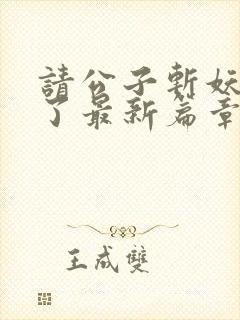 請公子斬妖
了最新篇章
王成雙